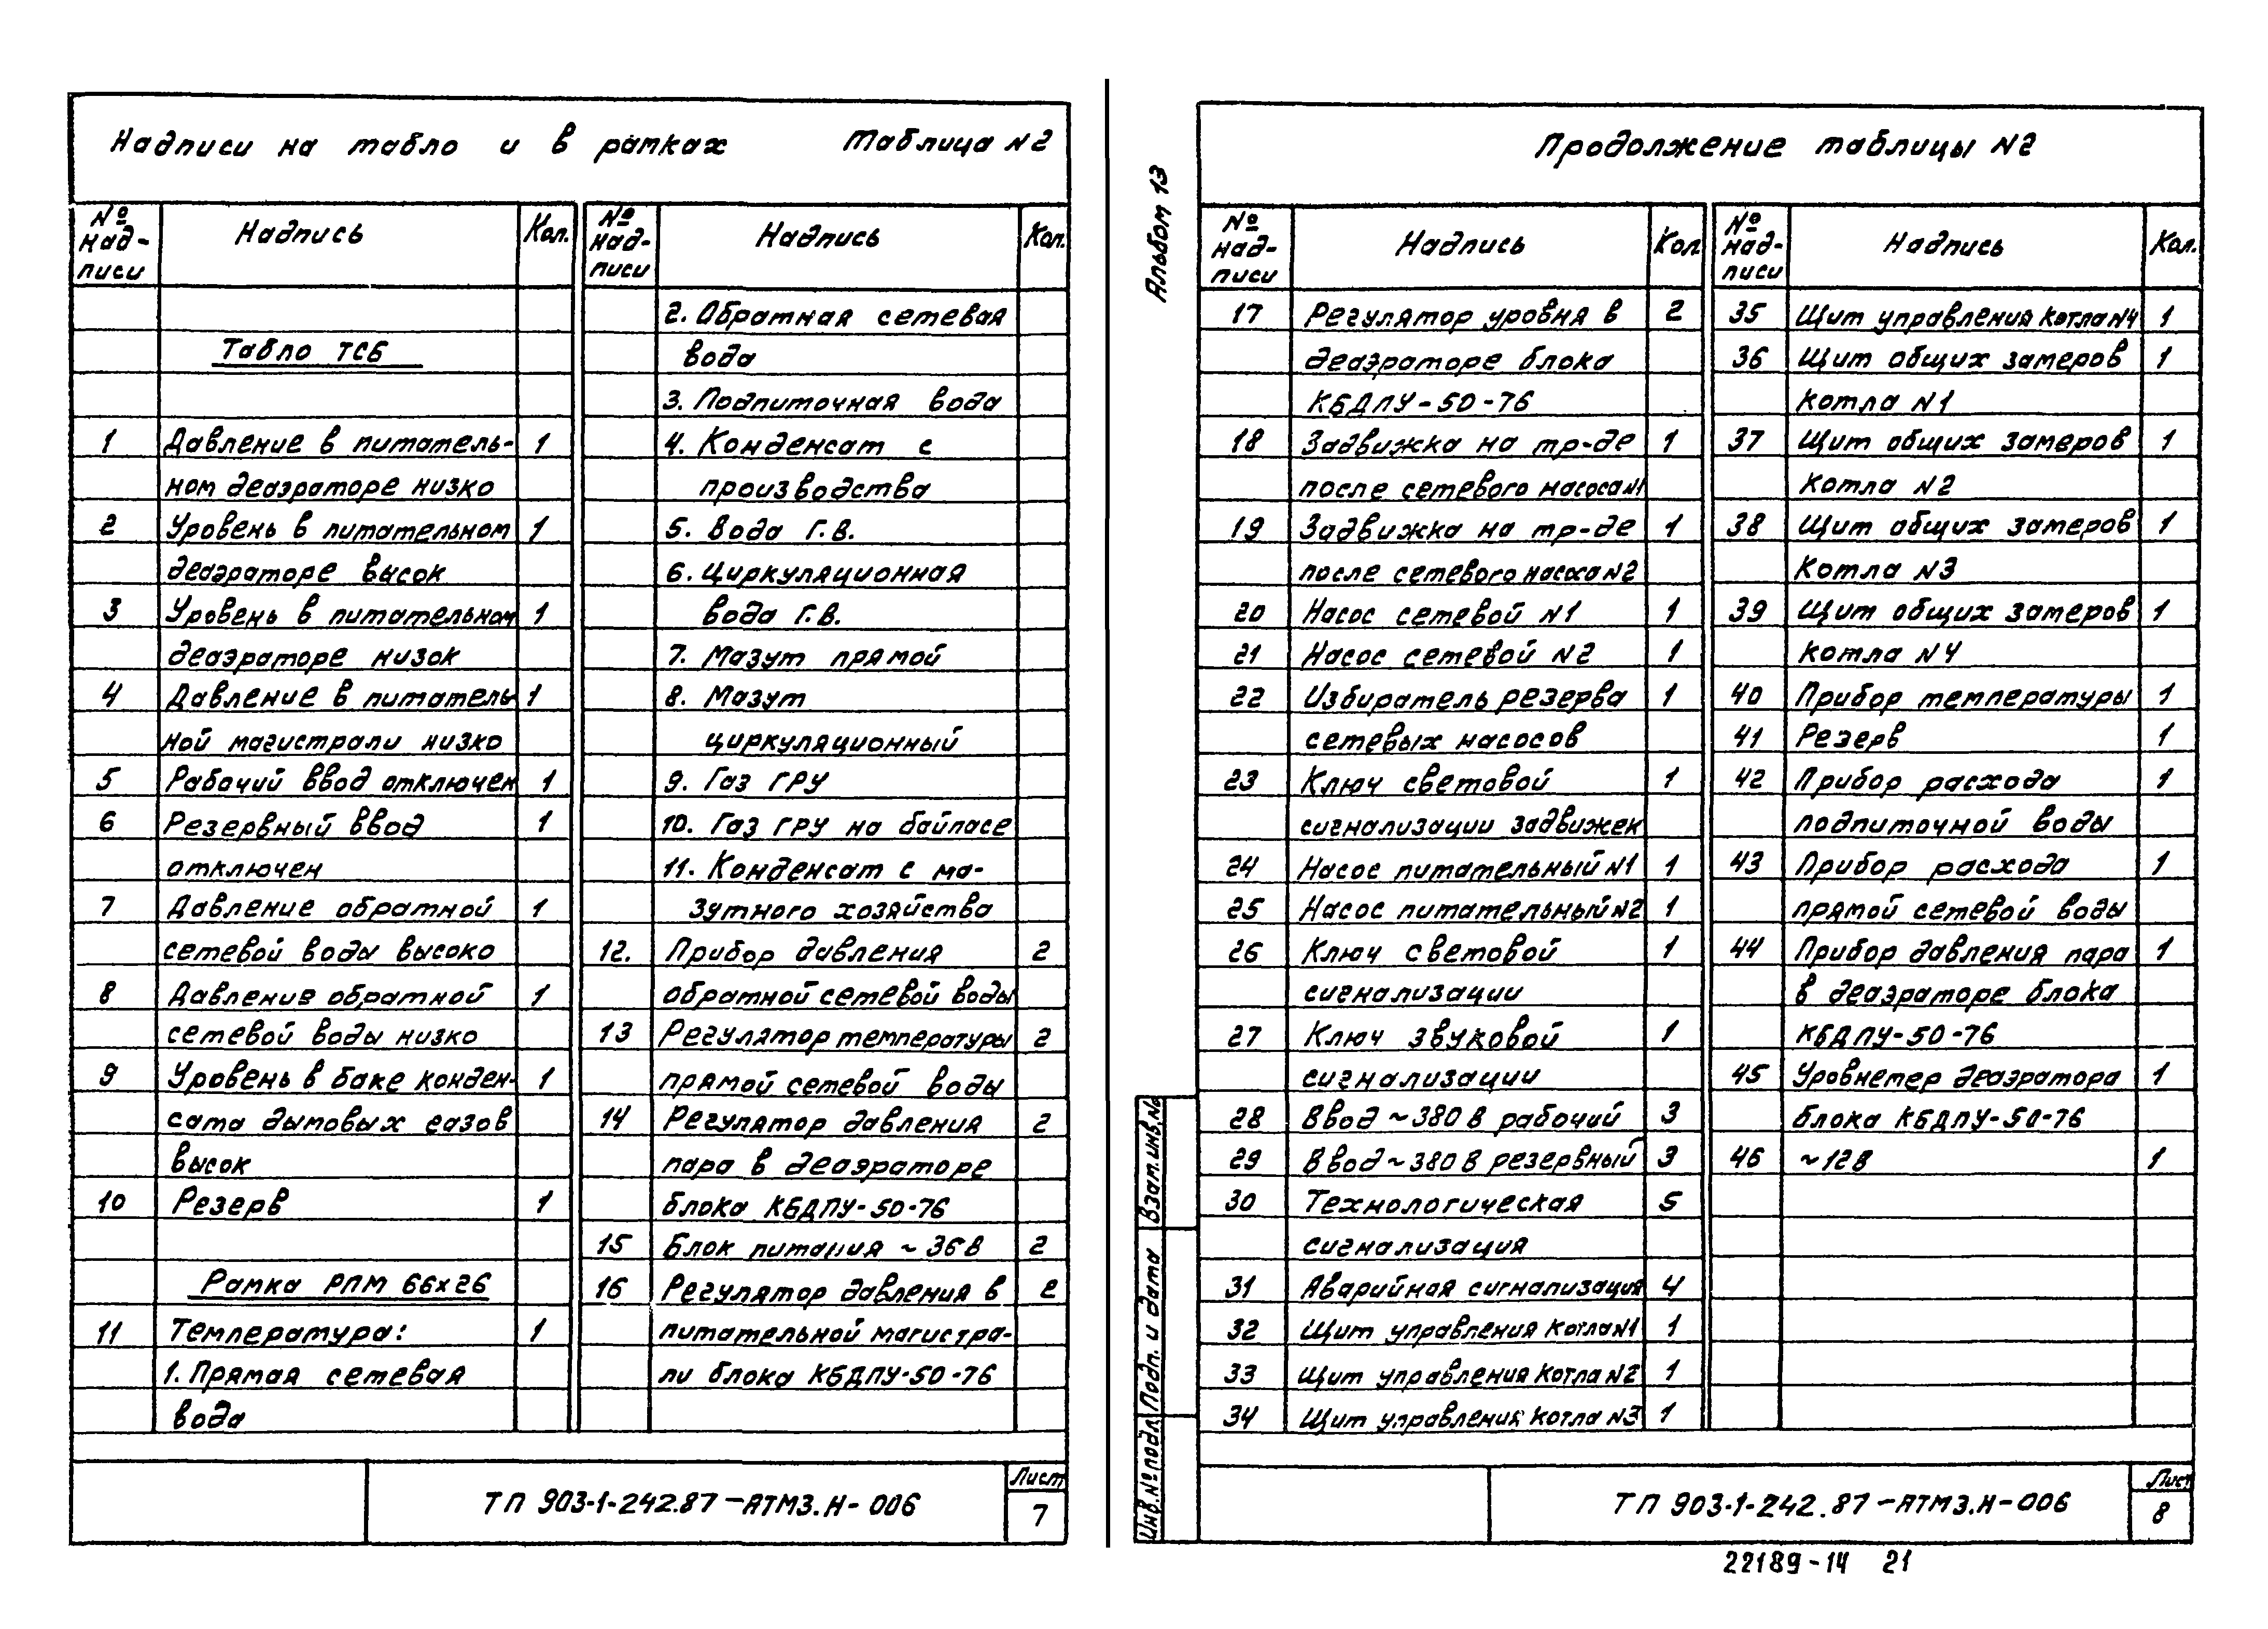 Надписи на табло и в рамках Таблица N2
№ над-писи Надпись Кол.
Табло ТСБ
1 Давление в питатель- 1
ном деаэраторе низко
2 Уровень в питательном 1
деаэраторе высок
3 Уровень в питательном 1
деаэраторе низок
4 Давление в питатель- 1
ной магистрали низко
5 Рабочий ввод отключен 1
6 Резервный ввод 1
отключен
7 Давление обратной 1
сетевой воды высоко
8 Давление обратной 1
сетевой воды низко
9 Уровень в баке конден- 1
сата дымовых газов
высок
10 Резерв 1
Рамка РПМ 66х26
11 Температура: 1
1. Прямая сетевая
вода
№ над-писи Надпись Кол.
2. Обратная сетевая
вода
3. Подпиточная вода
4. Конденсат с
производства
5. Вода Г.В.
6. Циркуляционная
вода Г.В.
7. Мазут прямой
8. Мазут
циркуляционный
9. Газ ГРУ
10. Газ ГРУ на байпасе
11. Конденсат с ма-
зутного хозяйства
12. Прибор давления 2
обратной сетевой воды
13 Регулятор температуры 2
прямой сетевой воды
14 Регулятор давления 2
пара в деаэраторе
блока КБДПУ-50-76
15 Блок питания ~ 36 В 2
16 Регулятор давления в 2
питательной магистра-
ли блока КБДПУ-50-76
ТП 903-1-242.87 -АТМ3.Н-006
Лист
7
Альбом 13
Продолжение таблицы N2
№ над-писи Надпись Кол
17 Регулятор уровня в 2
деаэраторе блока
КБДПУ-50-76
18 Задвижка на тр-де 1
после сетевого насоса N1
19 Задвижка на тр-де 1
после сетевого насоса N2
20 Насос сетевой N1 1
21 Насос сетевой N2 1
22 Избиратель резерва 1
сетевых насосов
23 Ключ световой 1
сигнализации задвижек
24 Насос питательный N1 1
25 Насос питательный N2 1
26 Ключ световой 1
сигнализации
27 Ключ звуковой 1
сигнализации
28 Ввод ~ 380 В рабочий 3
29 Ввод ~ 380 В резервный 3
30 Технологическая 5
сигнализация
31 Аварийная сигнализация 4
32 Щит управления котла N1 1
33 Щит управления котла N2 1
34 Щит управления котла N3 1
№ над-писи Надпись Кол.
35 Щит управления котла N4 1
36 Щит общих замеров 1
котла N1
37 Щит общих замеров 1
котла N2
38 Щит общих замеров 1
котла N3
39 Щит общих замеров 1
котла N4
40 Прибор температуры 1
41 Резерв 1
42 Прибор расхода 1
подпиточной воды
43 Прибор расхода 1
прямой сетевой воды
44 Прибор давления пара 1
в деаэраторе блока
КБДПУ-50-76
45 Уровнемер деаэратора 1
блока КБДПУ-50-76
46 ~ 12 В 1
Взам. инв. №
Подп. и дата
Инв. № подл.
ТП 903-1-242.87 -АТМ3.Н-006
Лист
8
22189-14 21